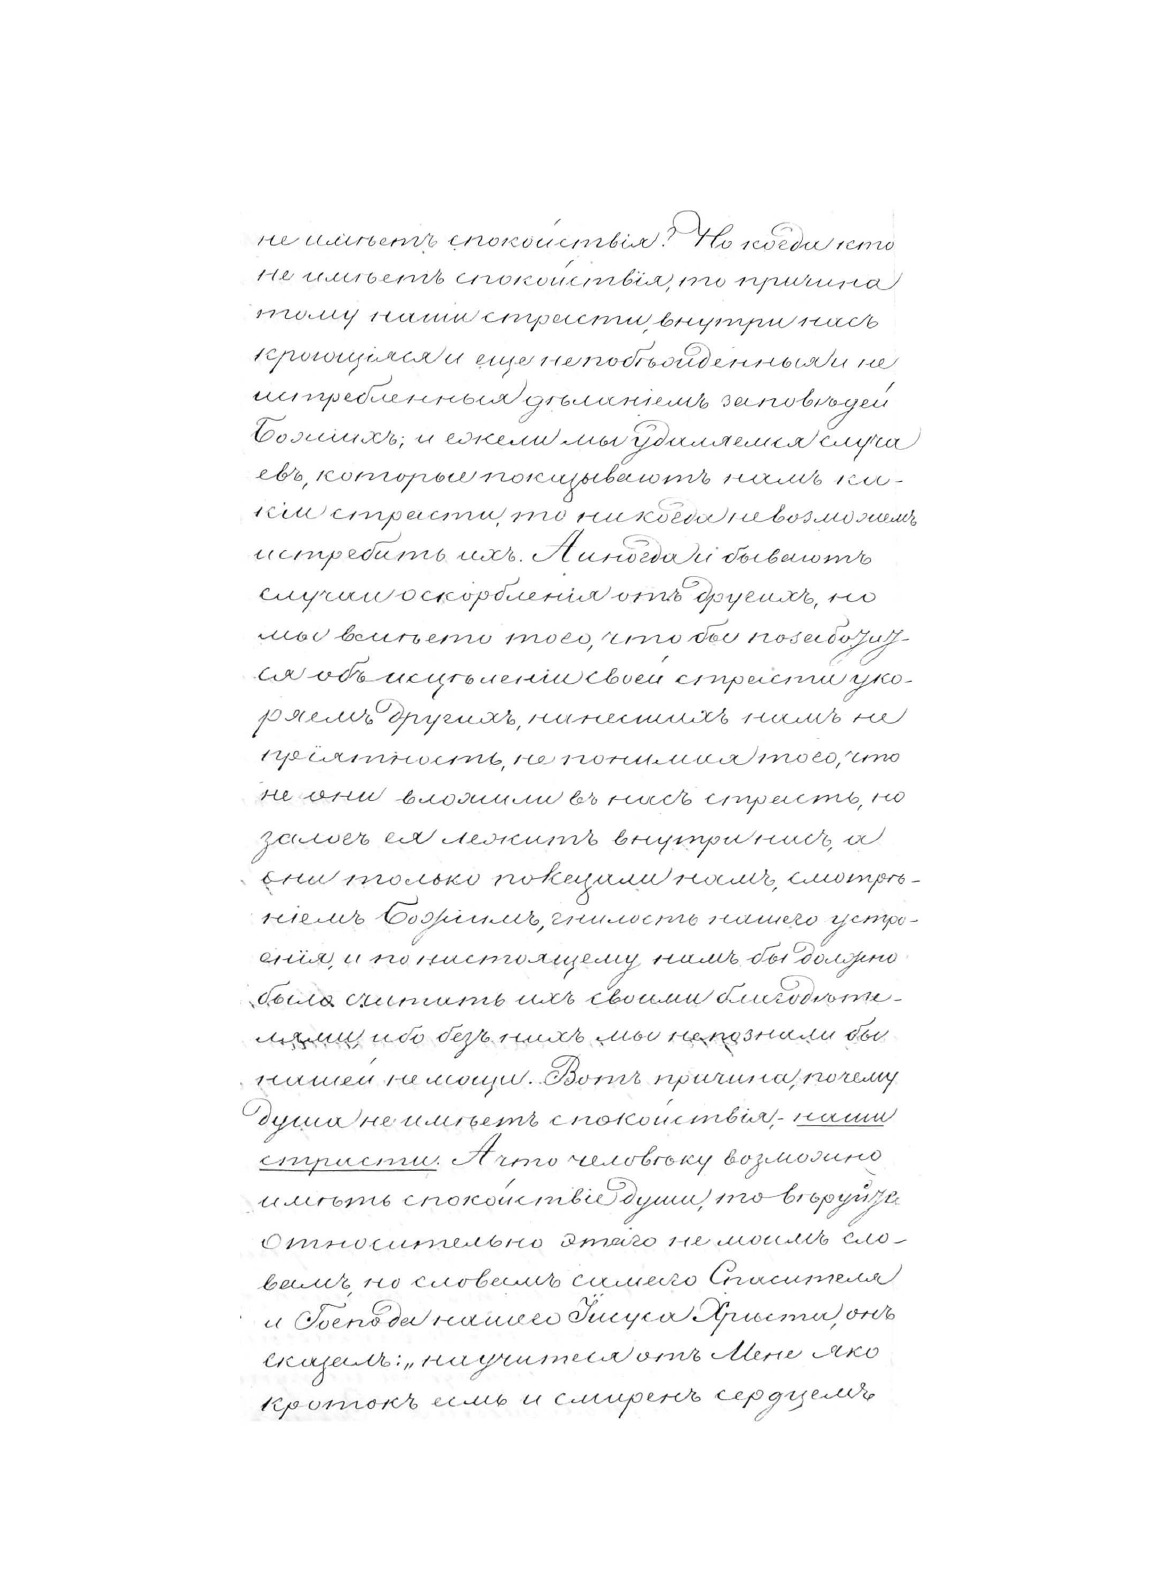 не имѣетъ спокойствія? Но когда кто
не имѣетъ спокойствія, то причина
тому наши страсти, внутри насъ
кроющіяся и еще непобѣжденныя и не
истребленныя дѣланіемъ заповѣдей
Божіихъ; и ежели мы удаляемся случа
евъ, которые показываютъ намъ ка-
кіи страсти, то никогда невозможемъ
истребить ихъ. А иногда и бываютъ
случаи оскорбленія отъ другихъ, но
мы вмѣсто того, что бы
ся объ исцѣленіи своей страсти уко-
ряемъ другихъ, нанесшихъ намъ не
пріятность, не понимая того, что
не они вложили въ насъ страсть, но
залогъ ея лежитъ внутри насъ, а
они только показали намъ, смотрѣ-
ніемъ Божіимъ, гнилость нашего устро-
енія, и по настоящему намъ бы должно
было считать ихъ своими благодѣте-
лями, ибо безъ нихъ мы не познали бы
нашей немощи. Вотъ причина, почему
душа не имѣетъ спокойствія,- наши
страсти. А что человѣку возможно
имѣть спокойствіе души, то вѣруйте
относительно этаго не моимъ сло-
вамъ, но словамъ самаго Спасителя
и Господа нашего Іисуса Христа, онъ
сказалъ: „научитеся отъ Мене яко
кротокъ есмь и смиренъ сердцемъ